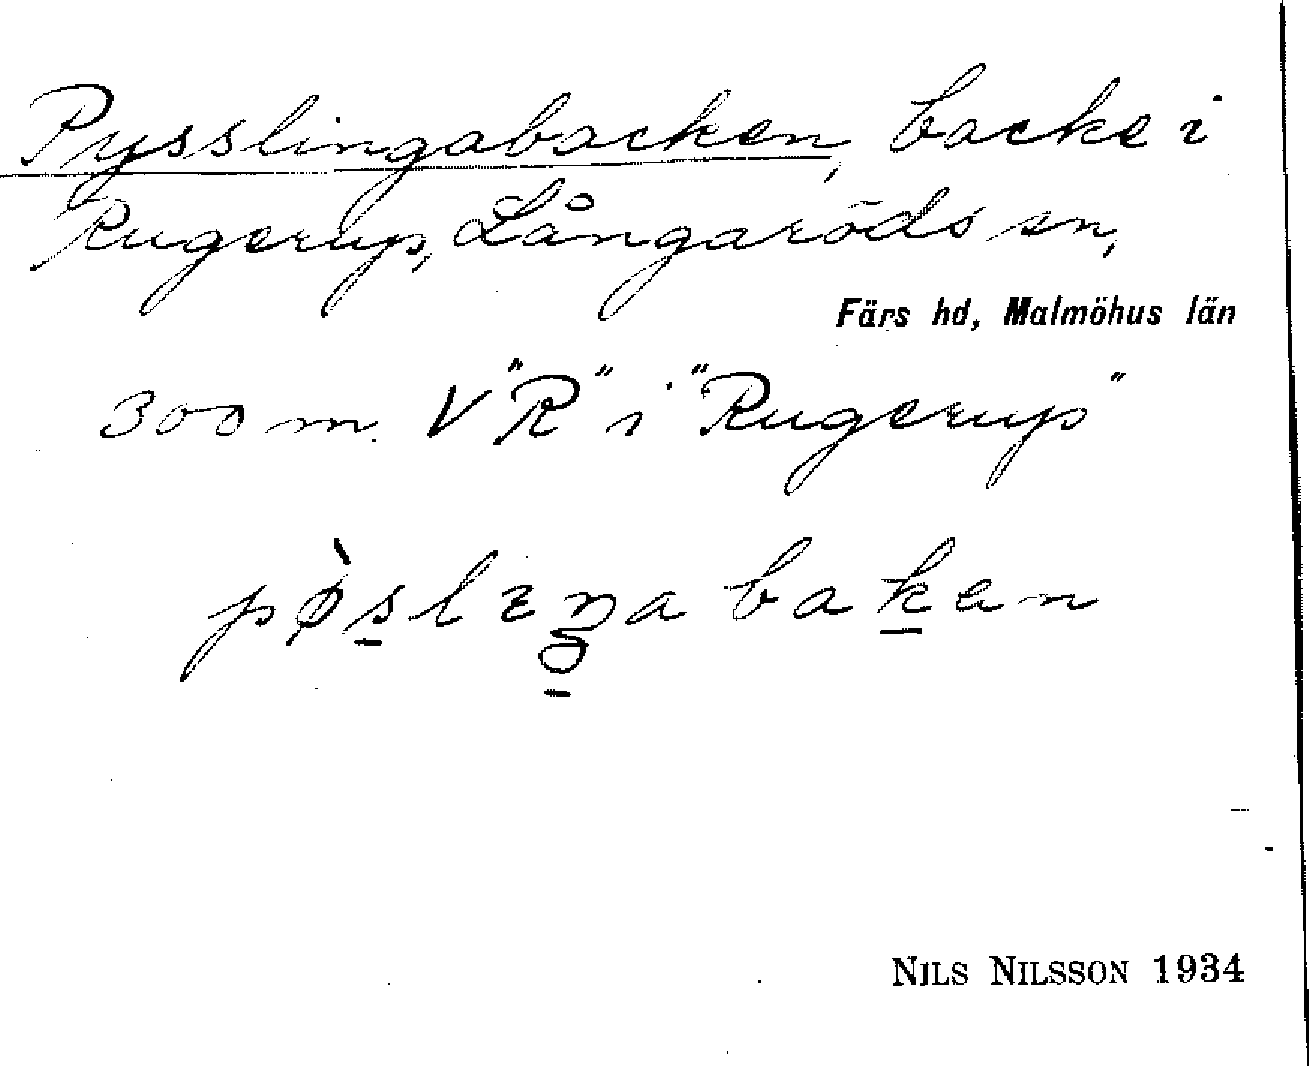 Pysslingabacken, backe i
Rugerup, Långaröds sn,
Färs hd, Malmöhus län
300 m. V "R" i "Rugerup"
pø̀s̲lɪŋa bak̲en
NILS NILSSON 1934